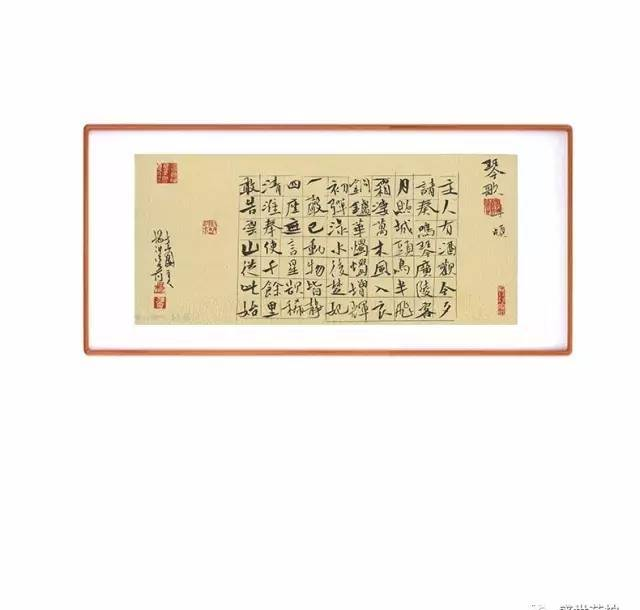 琴歌
主人有酒歡今夕
請奏鳴琴廣陵客
月照城頭烏半飛
霜淒萬木風入衣
銅鑪華燭燭增輝
初彈淥水後楚妃
一聲已動物皆靜
四座無言星欲稀
清淮奉使千餘里
敢告雲山從此始